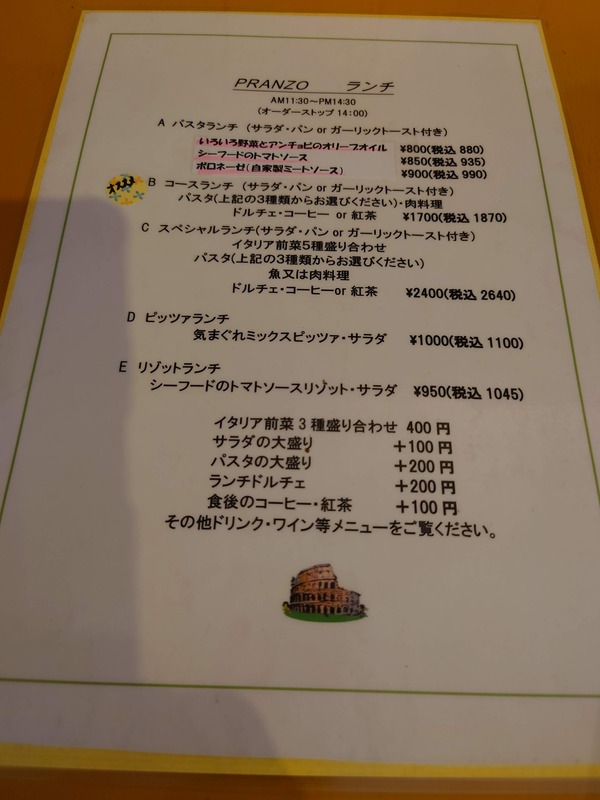 PRANZO ランチ
AM11:30～PM14:30
(オーダーストップ 14:00)
A パスタランチ (サラダ・パン or ガーリックトースト付き)
いろいろ野菜とアンチョビのオリーブオイル ¥800(税込 880)
シーフードのトマトソース ¥850(税込 935)
ボロネーゼ(自家製ミートソース) ¥900(税込 990)
オススメ
B コースランチ (サラダ・パン or ガーリックトースト付き)
パスタ(上記の3種類からお選びください)・肉料理
ドルチェ・コーヒー or 紅茶 ¥1700(税込 1870)
C スペシャルランチ(サラダ・パン or ガーリックトースト付き)
イタリア前菜5種盛り合わせ
パスタ(上記の3種類からお選びください)
魚又は肉料理
ドルチェ・コーヒーor 紅茶 ¥2400(税込 2640)
D ピッツァランチ
気まぐれミックスピッツァ・サラダ ¥1000(税込 1100)
E リゾットランチ
シーフードのトマトソースリゾット・サラダ ¥950(税込 1045)
イタリア前菜3種盛り合わせ 400円
サラダの大盛り +100円
パスタの大盛り +200円
ランチドルチェ +200円
食後のコーヒー・紅茶 +100円
その他ドリンク・ワイン等メニューをご覧ください。